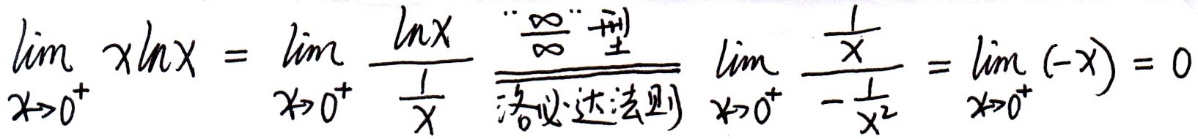 lim_{x→0⁺} x ln x = lim_{x→0⁺} \frac{ln x}{\frac{1}{x}} \xlongequal[洛必达法则]{"\frac{∞}{∞}"型} lim_{x→0⁺} \frac{\frac{1}{x}}{-\frac{1}{x²}} = lim_{x→0⁺} (-x) = 0